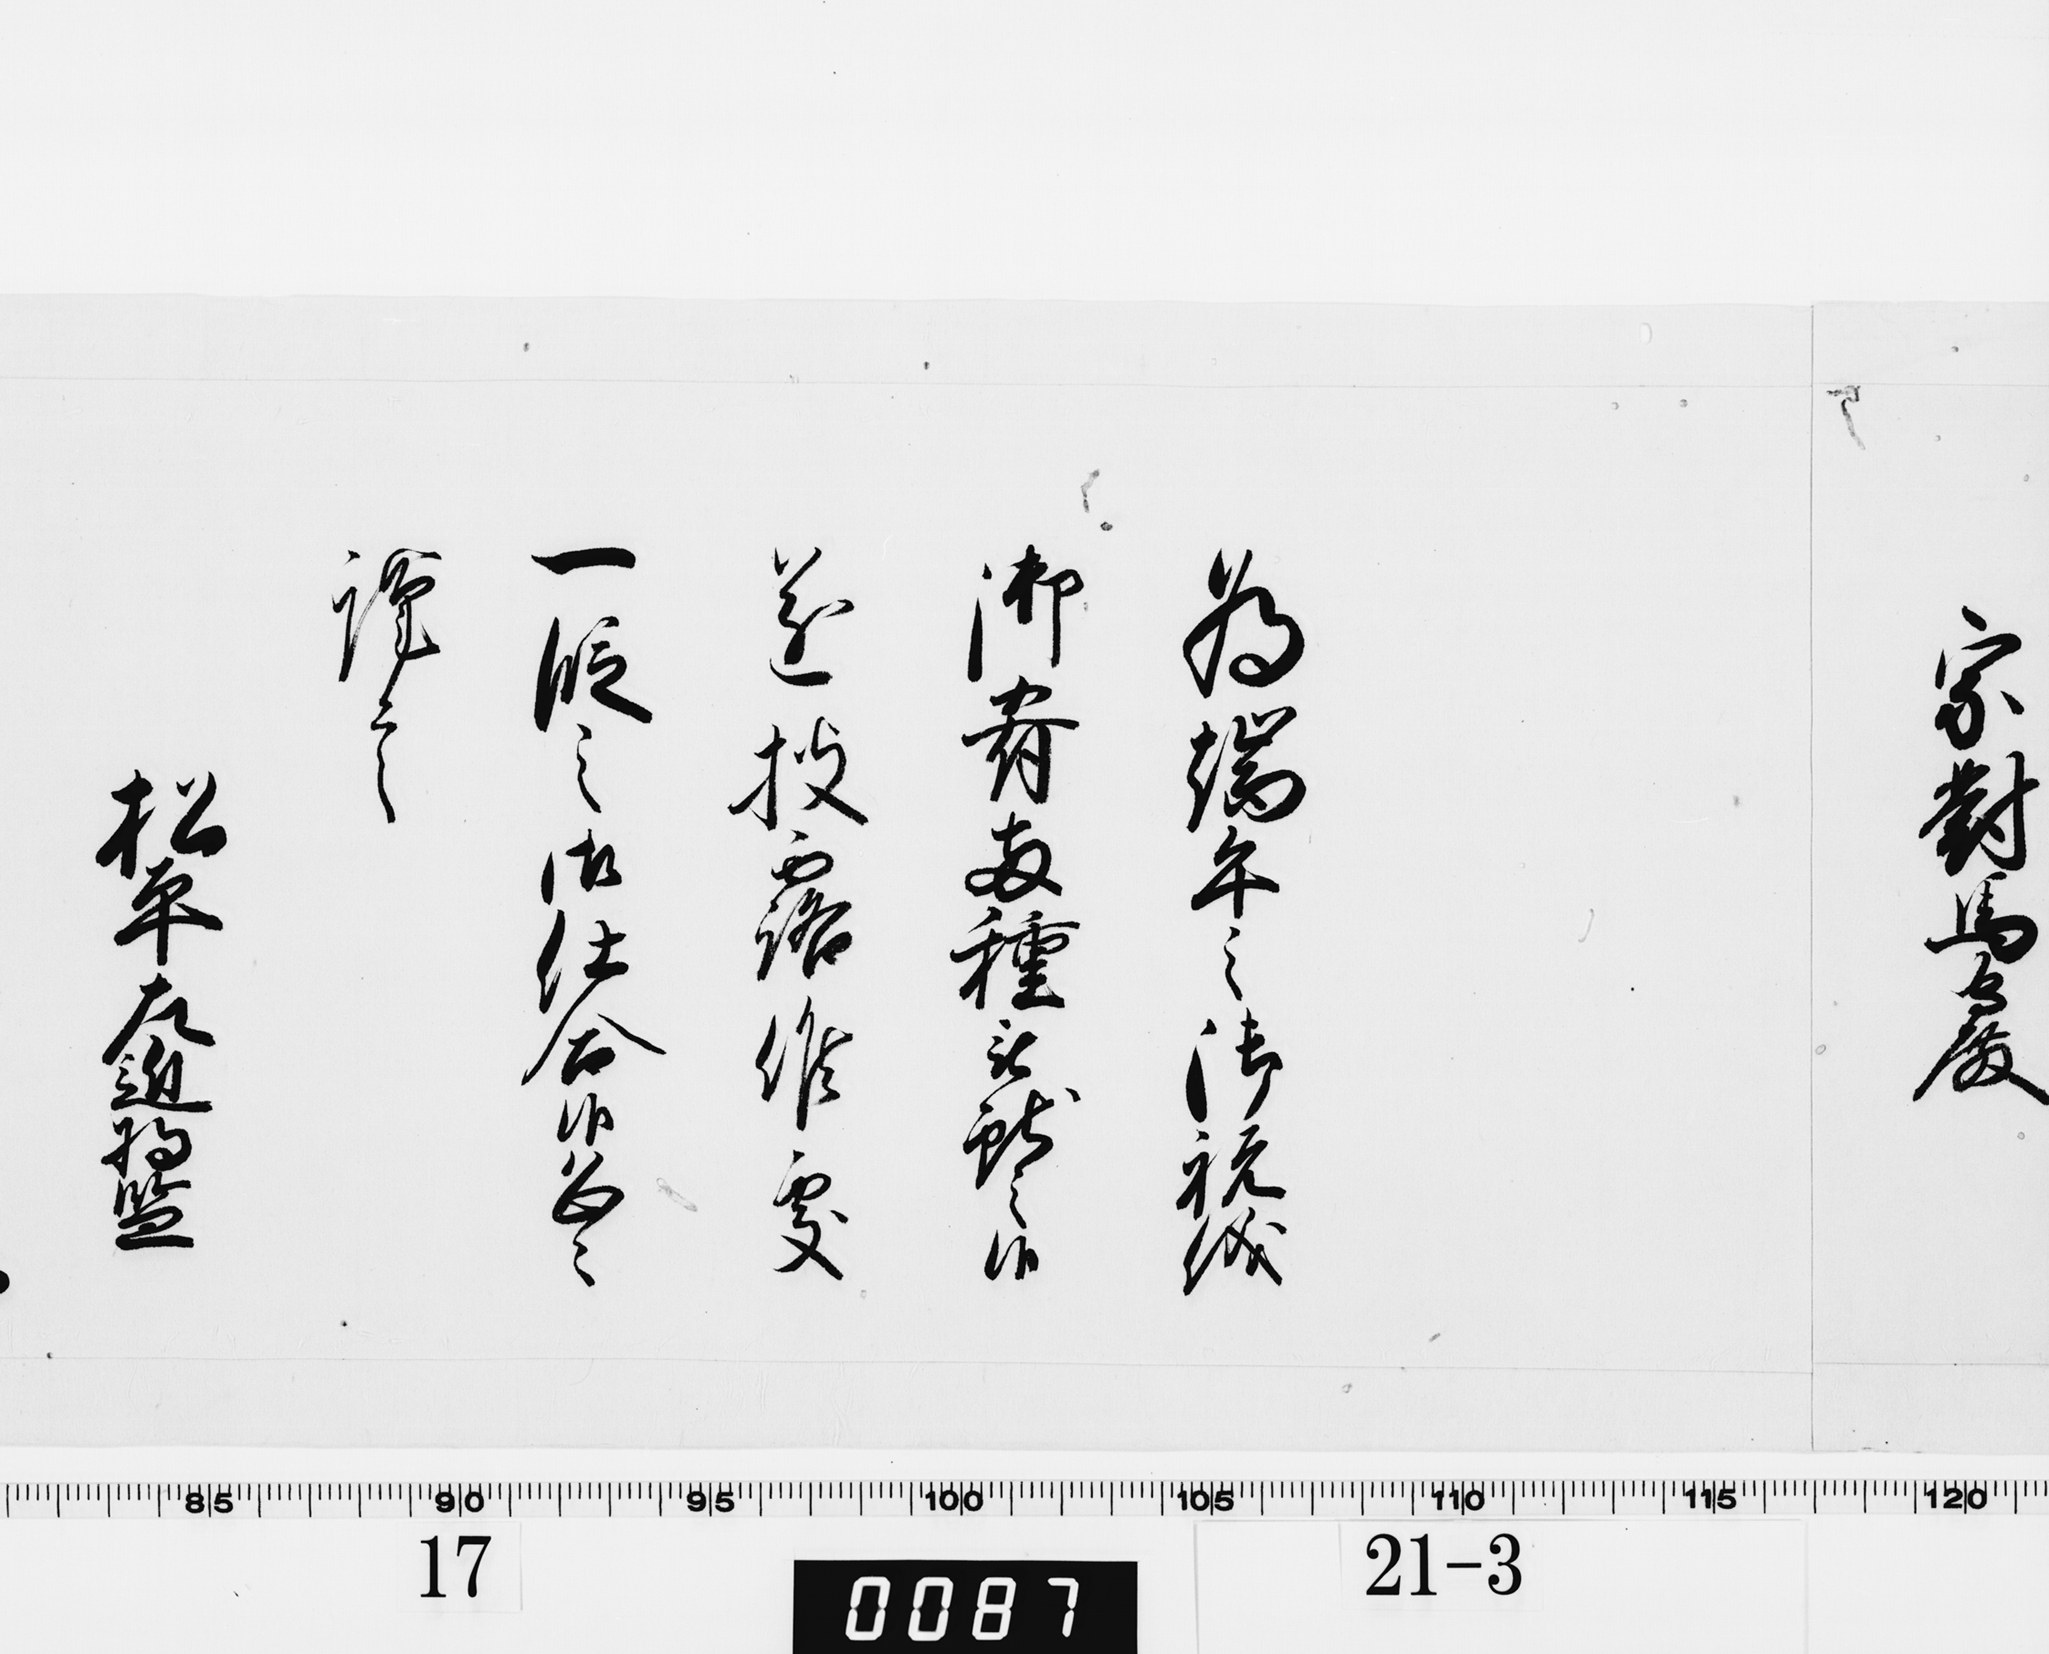 宗對馬守殿
為端午之御祝儀
御肴兩種被獻之候
遂披露候處
一段之御仕合候恐々
謹言
松平左近将監
85 90 95 100 105 110 115 120
17
21-3
0087